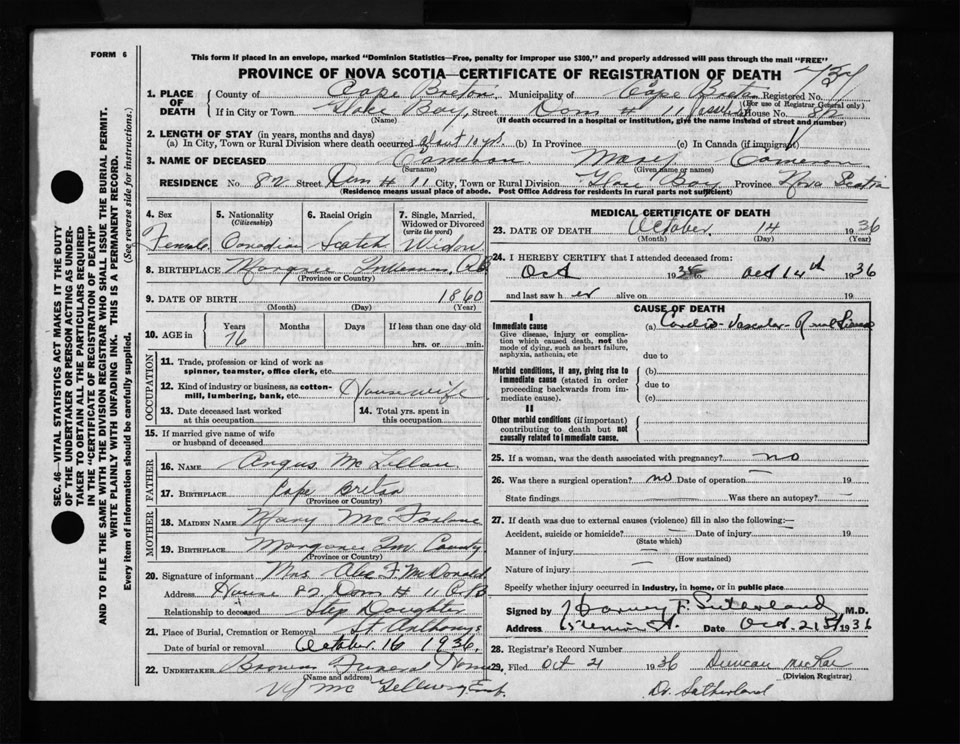 FORM 6
This form if placed in an envelope, marked "Dominion Statistics—Free, penalty for improper use $300," and properly addressed will pass through the mail "FREE"
PROVINCE OF NOVA SCOTIA—CERTIFICATE OF REGISTRATION OF DEATH
1. PLACE OF DEATH
County of Cape Breton Municipality of Cape Breton Registered No.
(For use of Registrar General only)
If in City or Town Glace Bay, Street Dom # 11 House No. 82
(Name) (If death occurred in a hospital or institution, give the name instead of street and number)
2. LENGTH OF STAY (in years, months and days)
(a) In City, Town or Rural Division where death occurred about 10 yrs. (b) In Province (c) In Canada (if immigrant)
3. NAME OF DECEASED Cameron. Mary Cameron
(Surname) (Given name or names)
RESIDENCE No 82 Street Dom # 11 City, Town or Rural Division Glace Bay Province Nova Scotia
(Residence means usual place of abode. Post Office Address for residents in rural parts not sufficient)
4. Sex Female
5. Nationality (Citizenship) Canadian
6. Racial Origin Scotch
7. Single, Married, Widowed or Divorced (write the word) Widow
8. BIRTHPLACE Margaree Inverness, C.B.
(Province or Country)
9. DATE OF BIRTH 1860
(Month) (Day) (Year)
10. AGE in Years Months Days If less than one day old
76 hrs. or min.
OCCUPATION
11. Trade, profession or kind of work as spinner, teamster, office clerk, etc.
12. Kind of industry or business, as cotton-mill, lumbering, bank, etc. Housewife
13. Date deceased last worked at this occupation
14. Total yrs. spent in this occupation
15. If married give name of wife or husband of deceased
FATHER
16. NAME Angus McLellan
17. BIRTHPLACE Cape Breton
(Province or Country)
MOTHER
18. MAIDEN NAME Mary McFarlane
19. BIRTHPLACE Margaree Inv County
(Province or Country)
20. Signature of informant Mrs. Alex F. McDonald
Address House 82 Dom # 11 C.B
Relationship to deceased Step Daughter
21. Place of Burial, Cremation or Removal St. Anthonys
Date of burial or removal October. 16 1936.
22. UNDERTAKER Browns Funeral Home
(Name and address)
MEDICAL CERTIFICATE OF DEATH
23. DATE OF DEATH October 14 1936
(Month) (Day) (Year)
24. I HEREBY CERTIFY that I attended deceased from:
Oct 19 to Oct 14th 1936
and last saw her alive on 19
CAUSE OF DEATH
I
Immediate cause
Give disease, injury or complication which caused death, not the mode of dying, such as heart failure, asphyxia, asthenia, etc
(a) Cardio-Vascular-Renal Disease
due to
Morbid conditions, if any, giving rise to immediate cause (stated in order proceeding backwards from immediate cause).
(b)
due to
(c)
II
Other morbid conditions (if important) contributing to death but not causally related to immediate cause.
25. If a woman, was the death associated with pregnancy? no
26. Was there a surgical operation? no Date of operation 19
State findings Was there an autopsy? —
27. If death was due to external causes (violence) fill in also the following:—
Accident, suicide or homicide? — Date of injury 19
(State which)
Manner of injury —
(How sustained)
Nature of injury —
Specify whether injury occurred in industry, in home, or in public place
Signed by Harvey F. Sutherland M.D.
Address Date Oct. 21st 1936
28. Registrar's Record Number
29. Filed Oct 21 1936 Duncan McRae
(Division Registrar)
Dr. Sutherland
SEC. 46—VITAL STATISTICS ACT MAKES IT THE DUTY
OF THE UNDERTAKER OR PERSON ACTING AS UNDER-
TAKER TO OBTAIN ALL THE PARTICULARS REQUIRED
IN THE "CERTIFICATE OF REGISTRATION OF DEATH"
AND TO FILE THE SAME WITH THE DIVISION REGISTRAR WHO SHALL ISSUE THE BURIAL PERMIT.
WRITE PLAINLY WITH UNFADING INK. THIS IS A PERMANENT RECORD.
Every item of information should be carefully supplied. (See reverse side for instructions.)